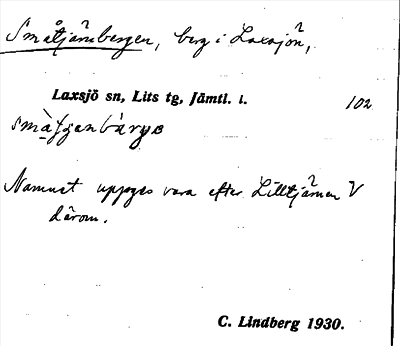 Småtjärnbergen, berg i Laxsjön,
Laxsjö sn, Lits tg, Jämtl. l.
102
Namnet uppges vara efter Lilltjärnen V
därom.
C. Lindberg 1930.